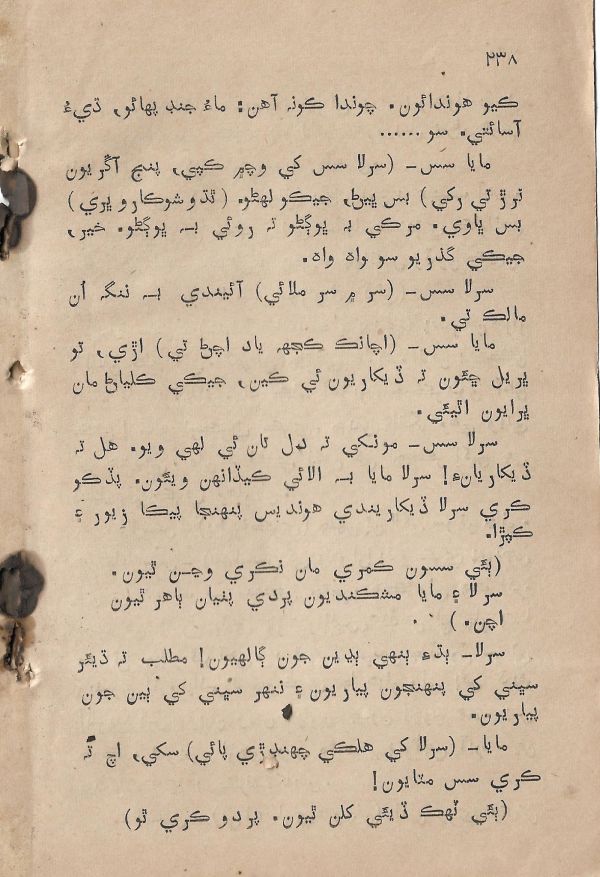 ٢٣٨
ڪيو هوندائون. چوندا ڪونہ آهن: ماءُ جنڊ پهائو، ڌيءُ
آسائتي. سو ......
مايا سس– (سرلا سس کي وچ۾ ڪپي، پنج آڱريون
نرڙ تي رکي) بس ڀيڻ، جيڪو لهڻو. (ٿڌو شوڪارو ڀري)
بس ڀاوي. مرکي بہ ڀوڳڻو تہ روئي بہ ڀوڳڻو. خير،
جيڪي گذريو سو واہ واہ.
سرلا سس– (سر ۾ سر ملائي) آئيندي بہ ننگہ اُن
مالڪ تي.
مايا سس– (اچانڪ ڪجهہ ياد اچڻ تي) اڙي، تو
ڀريل چٿون تہ ڏيکاريون ئي ڪين، جيڪي ڪلياڻ مان
ڀرايون اٿيئي.
سرلا سس– مونکي تہ دل تان ئي لهي ويو. هل تہ
ڏيکاريانءِ! سرلا مايا بہ الائي ڪيڏانهن ويئون. پڪ
ڪري سرلا ڏيکاريندي هونديس پنهنجا پيڪا زيور ۽
ڪپڙا.
(ٻئي سسون ڪمري مان نڪري وڃن ٿيون.
سرلا ۽ مايا مشڪنديون پردي پٺيان ٻاهر ٿيون
اچن.)
سرلا– ٻڌءِ ٻنهي ٻڍين جون ڳالهيون! مطلب تہ ڌيئر
سڀني کي پنهنجون پياريون ۽ ننهر سڀني کي ٻين جون
پياريون.
مايا– (سرلا کي هلڪي چهنڊڙي پائي) سکي، اچ تہ
ڪري سس مٽايون!
(ٻئي ٽهڪ ڏيئي کلن ٿيون. پردو ڪري ٿو)